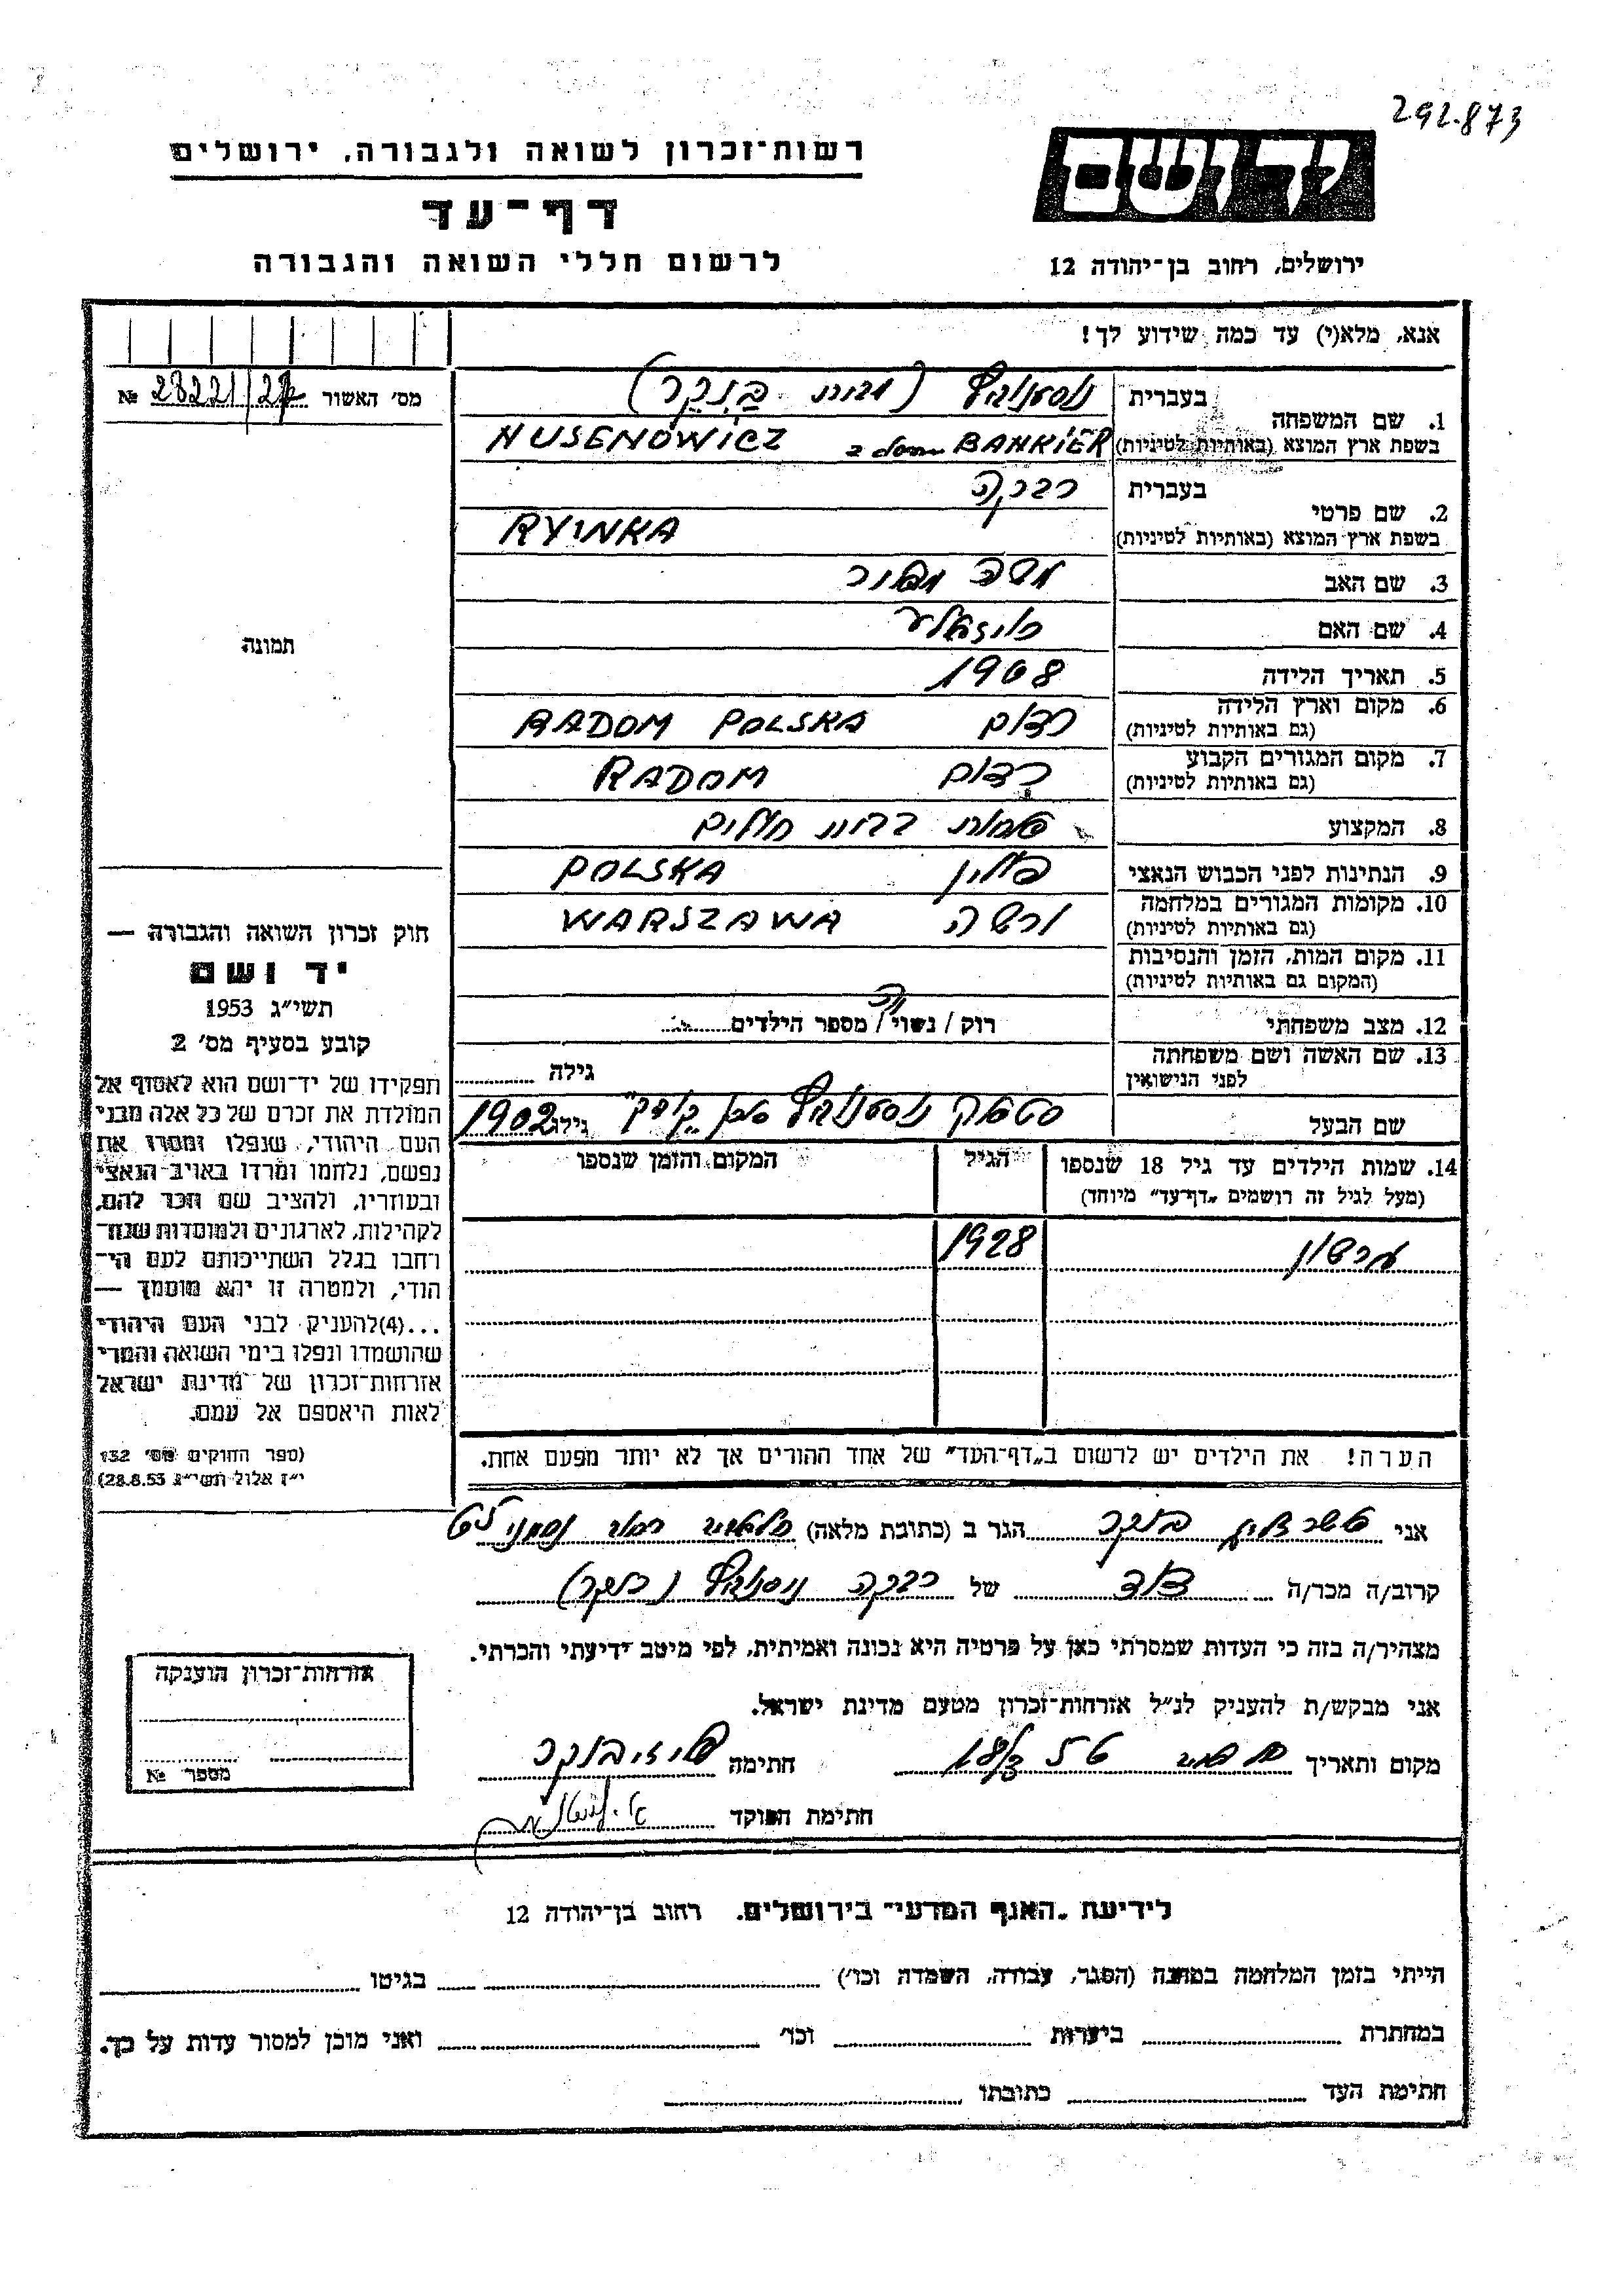 292.873
רשות־זכרון לשואה ולגבורה, ירושלים
יד ושם
דף־עד
ירושלים, רחוב בן־יהודה 12
לרשום חללי השואה והגבורה
אנא, מלא(י) עד כמה שידוע לך!
מס' האשור № 28221/
1. שם המשפחה
בעברית
בשפת ארץ המוצא (באותיות לטיניות) NUSENOWICZ z domu BANKIER
2. שם פרטי
בעברית רבקה
בשפת ארץ המוצא (באותיות לטיניות) RYWKA
3. שם האב משה
4. שם האם
5. תאריך הלידה 1908
6. מקום וארץ הלידה (גם באותיות לטיניות) רדום RADOM POLSKA
7. מקום המגורים הקבוע (גם באותיות לטיניות) רדום RADOM
8. המקצוע
9. הנתינות לפני הכבוש הנאצי פולין POLSKA
10. מקומות המגורים במלחמה (גם באותיות לטיניות) ורשה WARSZAWA
11. מקום המות, הזמן והנסיבות (המקום גם באותיות לטיניות)
12. מצב משפחתי רוק / נשוי / מספר הילדים
13. שם האשה ושם משפחתה לפני הנישואין גילה
שם הבעל גילו 1902
14. שמות הילדים עד גיל 18 שנספו (מעל לגיל זה רושמים „דף־עד" מיוחד)
הגיל
המקום והזמן שנספו
1928
הערה! את הילדים יש לרשום ב„דף־העד" של אחד ההורים אך לא יותר מפעם אחת.
תמונה
חוק זכרון השואה והגבורה —
יד ושם
תשי"ג 1953
קובע בסעיף מס' 2
תפקידו של יד־ושם הוא לאסוף אל
המולדת את זכרם של כל אלה מבני
העם היהודי, שנפלו ומסרו את
נפשם, נלחמו ומרדו באויב הנאצי
ובעוזריו, ולהציב שם וזכר להם,
לקהילות, לארגונים ולמוסדות שנח־
רחבו בגלל השתייכותם לעם הי־
הודי, ולמטרה זו יהא מוסמך —
...(4)להעניק לבני העם היהודי
שהושמדו ונפלו בימי השואה והמרי
אזרחות־זכרון של מדינת ישראל
לאות היאספם אל עמם.
(ספר החוקים מס' 132
י"ז אלול תשי"ג 28.8.53)
אני בנקר הגר ב (כתובת מלאה)
קרוב/ה מכר/ה דוד של רבקה
מצהיר/ה בזה כי העדות שמסרתי כאן על פרטיה היא נכונה ואמיתית, לפי מיטב ידיעתי והכרתי.
אני מבקש/ת להעניק לנ"ל אזרחות־זכרון מטעם מדינת ישראל.
מקום ותאריך חתימה
חתימת הפוקד
אזרחות־זכרון הוענקה
מספר №
לידיעת „האגף המדעי" בירושלים, רחוב בן־יהודה 12
הייתי בזמן המלחמה במחנה (הסגר, עבודה, השמדה וכו') בגיטו
במחתרת ביערות וכו' ואני מוכן למסור עדות על כך.
חתימת העד כתובתו